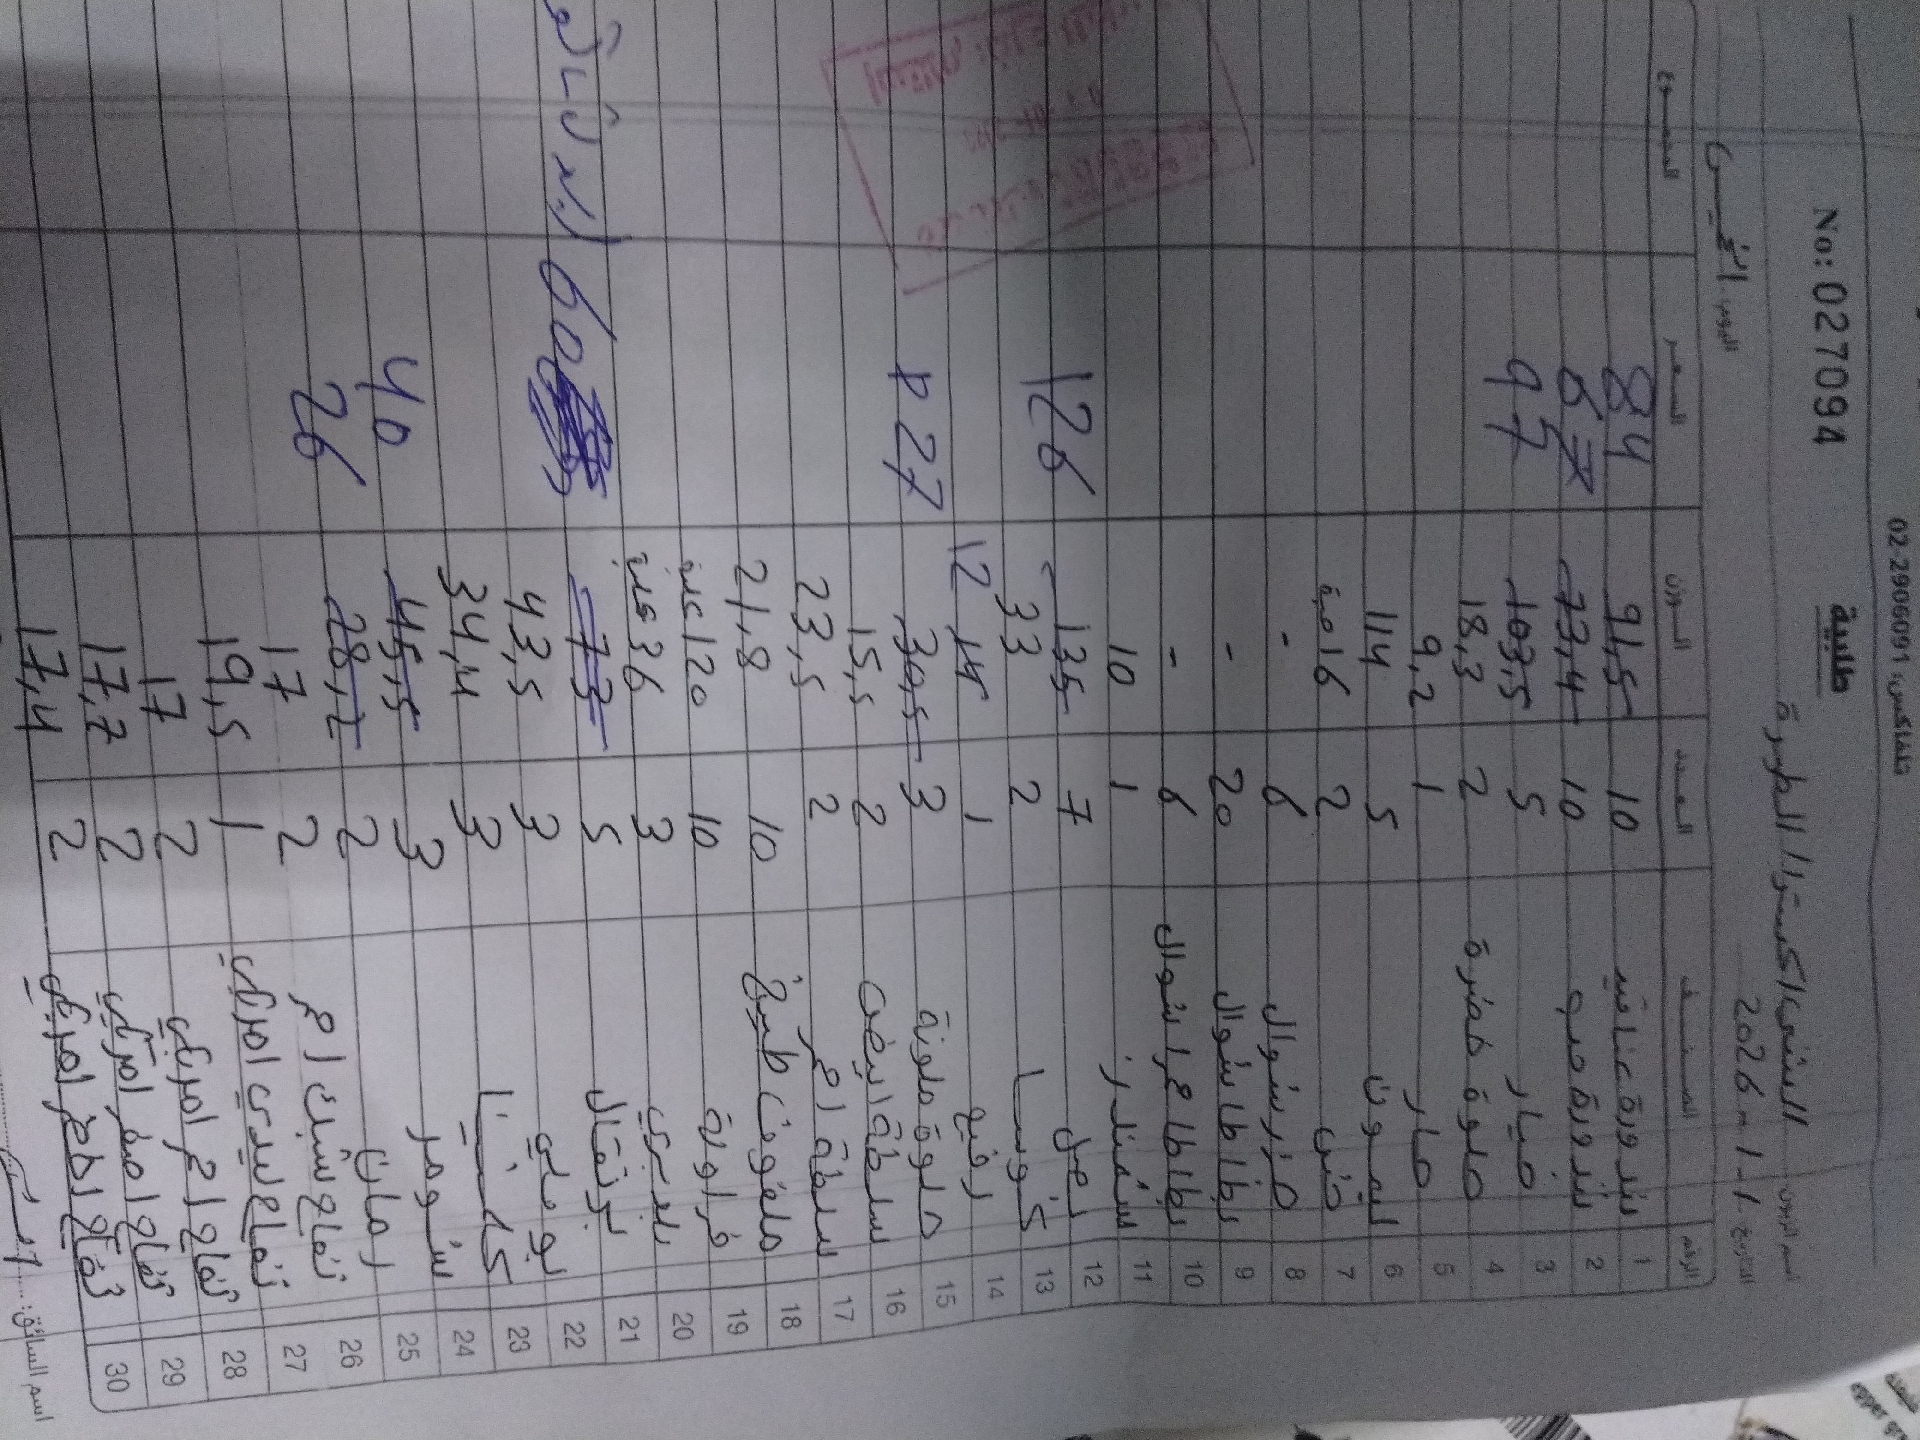 تلفاكس: 02-2906091
No: 0270094
طلبية
اسم الزبون: الشني اكسترا / الطيرة
التاريخ: 2026-1-1
اليوم: الخميس
الرقم الصنف العدد الوزن السعر المجموع
1 بندورة عناقيد 10 91,5 84
2 بندورة حب 10 73,4 67
3 خيار 5 103,5 97
4 حلوة خضرة 2 18,3
5 حار 1 9,2
6 ليمون 5 114
7 خس 2 16 حبة
8 جزر شوال 6 -
9 بطاطا شوال 20 -
10 بطاطا حمرا شوال 6 -
11 1 10
12 بصل 7 135 126
13 كوسا 2 33
14 رفيع 1 12
15 حلوة ملونة 3 30,5 27
16 سلطة ابيض 2 15,5
17 سلطة احمر 2 23,5
18 ملفوف طبيخ 10 21,8
19 فراولة 10 120 علبة
20 بلدي 3 36 علبة
21 برتقال 5 73 60
22 بوملي 3 43,5
23 كلمنتينا 3 34,4
24 شومر 3 45,5 40
25 رمان 2 28,2 26
26 تفاح سبتك احمر 2 17
27 تفاح ليدي امريكي 1 19,5
28 تفاح احمر امريكي 2 17
29 تفاح اصفر امريكي 2 17,7
30 تفاح اخضر امريكي 2 17,4
اسم السائق: